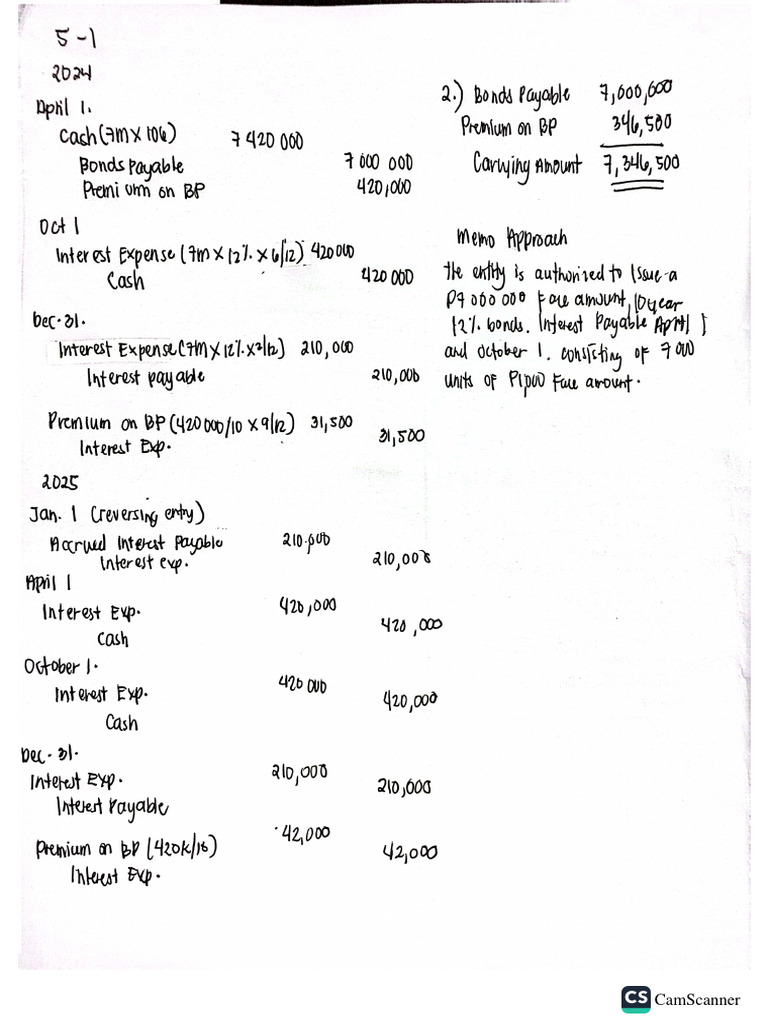 5-1
2024
April 1.
Cash (7M X 106) 7 420 000
Bonds Payable 7 000 000
Premium on BP 420,000
Oct 1
Interest Expense (7M X 12% X 6/12) 420 000
Cash 420 000
Dec. 31.
Interest Expense (7M X 12% X 3/12) 210,000
Interest payable 210,000
Premium on BP (420 000/10 X 9/12) 31,500
Interest Exp. 31,500
2025
Jan. 1 (reversing entry)
Accrued Interest Payable 210.000
Interest exp. 210,000
April 1
Interest Exp. 420,000
Cash 420,000
October 1.
Interest Exp. 420 000
Cash 420,000
Dec. 31.
Interest Exp. 210,000
Interest Payable 210,000
Premium on BP (420K/10) 42,000
Interest Exp. 42,000
2.) Bonds Payable 7,000,000
Premium on BP 346,500
Carrying Amount 7,346,500
Memo Approach
The entity is authorized to issue a
P7 000 000 Face amount, 10 year
12% bonds. Interest Payable April 1
and October 1. consisting of 7 000
units of P1,000 Face amount.
CS CamScanner